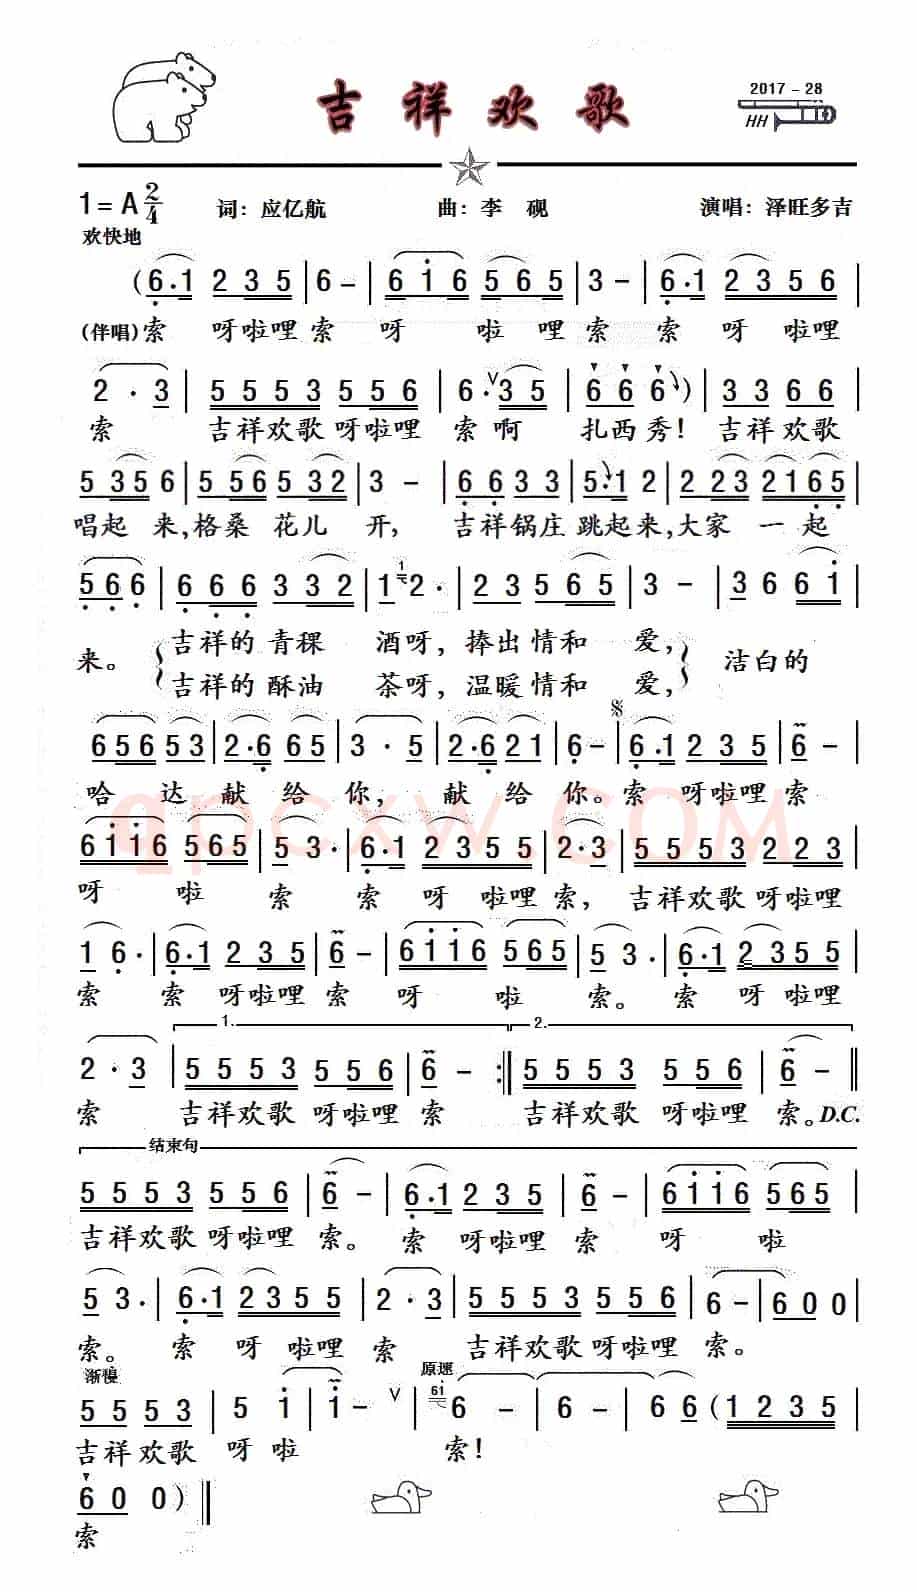 吉祥欢歌
2017-28
HH
1=A 2/4 词：应亿航 曲：李 砚 演唱：泽旺多吉
欢快地
(6·1 2 3 5 | 6 - | 6 1 6 5 6 5 | 3 - | 6·1 2 3 5 6 |
(伴唱)索 呀啦哩索 呀 啦 哩索 索 呀 啦哩
2 · 3 | 5 5 5 3 5 5 6 | 6· V 3 5 | 6 6 6 ) | 3 3 6 6 |
索 吉祥欢歌 呀啦哩 索 啊 扎西秀！ 吉祥欢歌
5 3 5 6 | 5 5 6 5 3 2 | 3 - | 6 6 3 3 | 5·1 2 | 2 2 3 2 1 6 5 |
唱起 来,格桑 花儿 开, 吉祥锅庄 跳起来,大家 一 起
5 6 6 | 6 6 6 3 3 2 | 1 1 2· | 2 3 5 6 5 | 3 - | 3 6 6 1 |
来。 吉祥的 青稞 酒呀，捧出情和 爱, 洁白的
吉祥的 酥油 茶呀，温暖情和 爱,
6 5 6 5 3 | 2·6 6 5 | 3 · 5 | 2·6 2 1 | 6 - | 6·1 2 3 5 | 6 - |
哈 达 献 给 你， 献 给 你。索 呀啦哩索
qpcxw.com
6 1 1 6 5 6 5 | 5 3· | 6·1 2 3 5 5 | 2·3 | 5 5 5 3 2 2 3 |
呀 啦 索 索 呀 啦哩索，吉祥欢歌呀啦哩
1 6· | 6·1 2 3 5 | 6 - | 6 1 1 6 5 6 5 | 5 3· | 6·1 2 3 5 5 |
索 索 呀啦哩 索 呀 啦 索。 索 呀 啦哩
1. 2.
2 · 3 | 5 5 5 3 5 5 6 | 6 - :| 5 5 5 3 5 5 6 | 6 - ||
索 吉祥欢歌 呀啦哩 索 吉祥欢歌 呀啦哩 索。D.C.
结束句
5 5 5 3 5 5 6 | 6 - | 6·1 2 3 5 | 6 - | 6 1 1 6 5 6 5 |
吉祥欢歌 呀啦哩 索。 索 呀啦哩 索 呀 啦
5 3· | 6·1 2 3 5 5 | 2 · 3 | 5 5 5 3 5 5 6 | 6 - | 6 0 0 |
索。 索 呀 啦哩 索 吉祥欢歌呀啦哩 索。
渐慢 原速
5 5 5 3 | 5 1 | 1 - V | 61 6 - | 6 - | 6 6 (1 2 3 5 |
吉祥欢歌 呀 啦 索！
6 0 0 ) ||
索